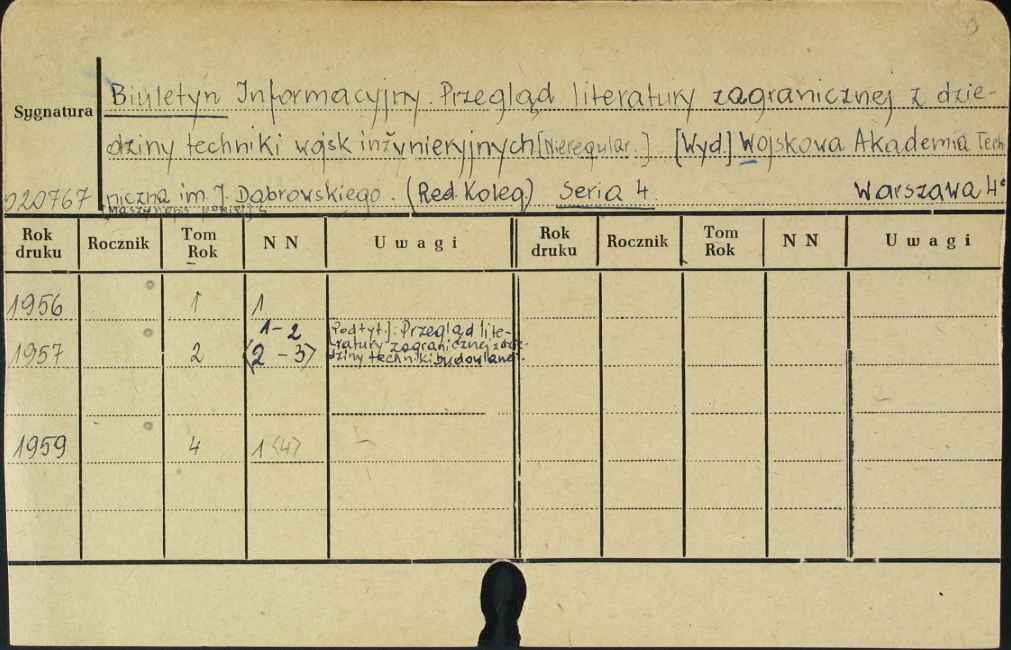 Sygnatura
Biuletyn Informacyjny. Przegląd literatury zagranicznej z dzie-
dziny techniki wojsk inżynieryjnych [Nieregular.] [Wyd.] Wojskowa Akademia Tech
020767 niczna im. J. Dąbrowskiego. (Red. Koleg.) Seria 4. Warszawa 4°
Rok druku Rocznik Tom Rok N N Uwagi Rok druku Rocznik Tom Rok N N Uwagi
1956 1 1
1-2 [Podtyt.]: Przegląd lite-
1957 2 (2-3) ratury zagranicznej z dzie-
dziny techniki budowlanej
1959 4 1 (4)